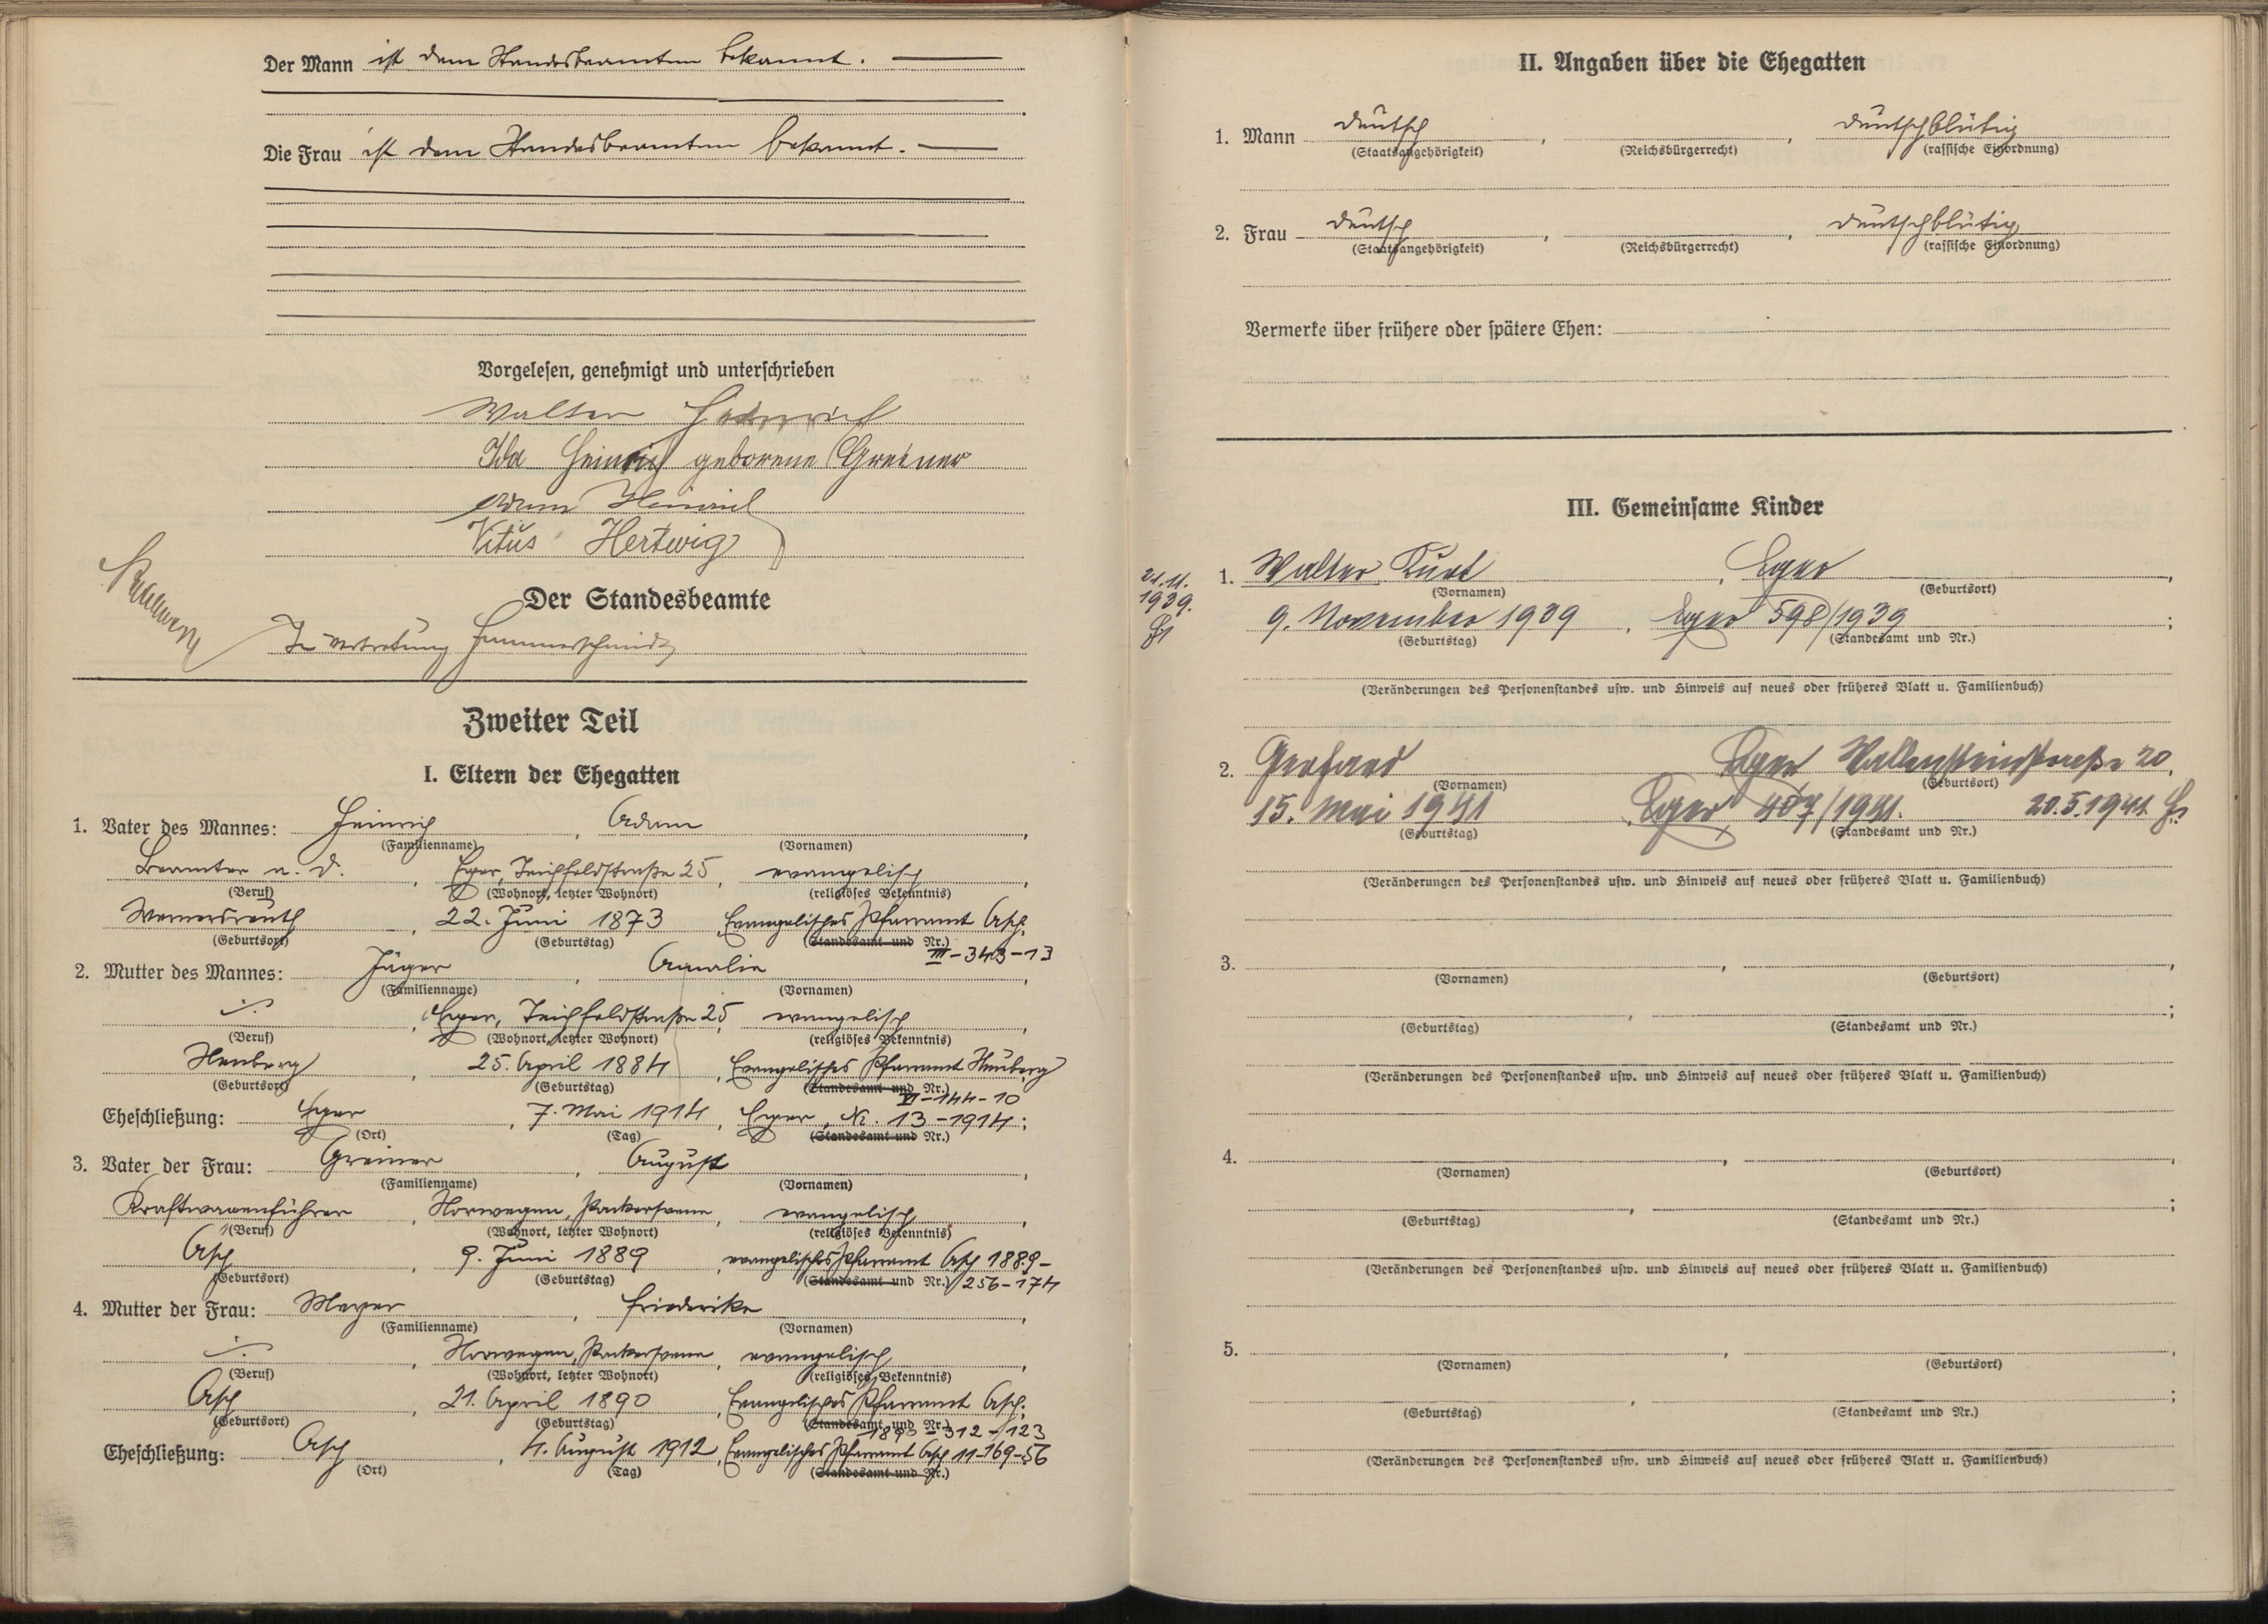 Der Mann ist dem Standesbeamten bekannt.
Die Frau ist dem Standesbeamten bekannt.
Vorgelesen, genehmigt und unterschrieben
Walter Heinrich
Ida Heinrich geborene Greiner
Adam Heinrich
Vitus Hertwig
Der Standesbeamte
In Vertretung Hammerschmidt
Zweiter Teil
I. Eltern der Ehegatten
1. Vater des Mannes: Heinrich, Adam,
(Familienname) (Vornamen)
Beamter a. D., Eger, Teichfeldstraße 25, evangelisch,
(Beruf) (Wohnort, letzter Wohnort) (religiöses Bekenntnis)
Wernersreuth, 22. Juni 1873, Evangelisches Pfarramt Asch.
(Geburtsort) (Geburtstag) (Standesamt und Nr.) III-343-13
2. Mutter des Mannes: Jäger, Amalie,
(Familienname) (Vornamen)
Eger, Teichfeldstraße 25, evangelisch,
(Beruf) (Wohnort, letzter Wohnort) (religiöses Bekenntnis)
Neuberg, 25. April 1884, Evangelisches Pfarramt Neuberg
(Geburtsort) (Geburtstag) (Standesamt und Nr.)
VI-144-10
Eheschließung: Eger, 7. Mai 1914, Eger, Nr. 13-1914;
(Ort) (Tag) (Standesamt und Nr.)
3. Vater der Frau: Greiner, August,
(Familienname) (Vornamen)
Kraftwagenführer, Norwegen, evangelisch,
(Beruf) (Wohnort, letzter Wohnort) (religiöses Bekenntnis)
Asch, 9. Juni 1889, evangelisches Pfarramt Asch 1889-
(Geburtsort) (Geburtstag) (Standesamt und Nr.) 256-174
4. Mutter der Frau: Meyer, Friederike,
(Familienname) (Vornamen)
Norwegen, evangelisch,
(Beruf) (Wohnort, letzter Wohnort) (religiöses Bekenntnis)
Asch, 21. April 1890, Evangelisches Pfarramt Asch.
(Geburtsort) (Geburtstag) (Standesamt und Nr.)
1893-312-123
Eheschließung: Asch, 4. August 1912, Evangelisches Pfarramt Asch 11-169-56
(Ort) (Tag) (Standesamt und Nr.)
II. Angaben über die Ehegatten
1. Mann deutsch, , deutschblütig
(Staatsangehörigkeit) (Reichsbürgerrecht) (rassische Einordnung)
2. Frau deutsch, , deutschblütig
(Staatsangehörigkeit) (Reichsbürgerrecht) (rassische Einordnung)
Vermerke über frühere oder spätere Ehen:
III. Gemeinsame Kinder
21.11.
1939.
1. Walter Kurt, Eger,
(Vornamen) (Geburtsort)
9. November 1939, Eger 598/1939;
(Geburtstag) (Standesamt und Nr.)
(Veränderungen des Personenstandes usw. und Hinweis auf neues oder früheres Blatt u. Familienbuch)
2. Gerhard Eger Wallensteinstraße 20,
(Vornamen) (Geburtsort)
15. Mai 1941, Eger 407/1941. 20.5.1941
(Geburtstag) (Standesamt und Nr.)
(Veränderungen des Personenstandes usw. und Hinweis auf neues oder früheres Blatt u. Familienbuch)
3. , ,
(Vornamen) (Geburtsort)
, ;
(Geburtstag) (Standesamt und Nr.)
(Veränderungen des Personenstandes usw. und Hinweis auf neues oder früheres Blatt u. Familienbuch)
4. , ,
(Vornamen) (Geburtsort)
, ;
(Geburtstag) (Standesamt und Nr.)
(Veränderungen des Personenstandes usw. und Hinweis auf neues oder früheres Blatt u. Familienbuch)
5. , ,
(Vornamen) (Geburtsort)
, ;
(Geburtstag) (Standesamt und Nr.)
(Veränderungen des Personenstandes usw. und Hinweis auf neues oder früheres Blatt u. Familienbuch)